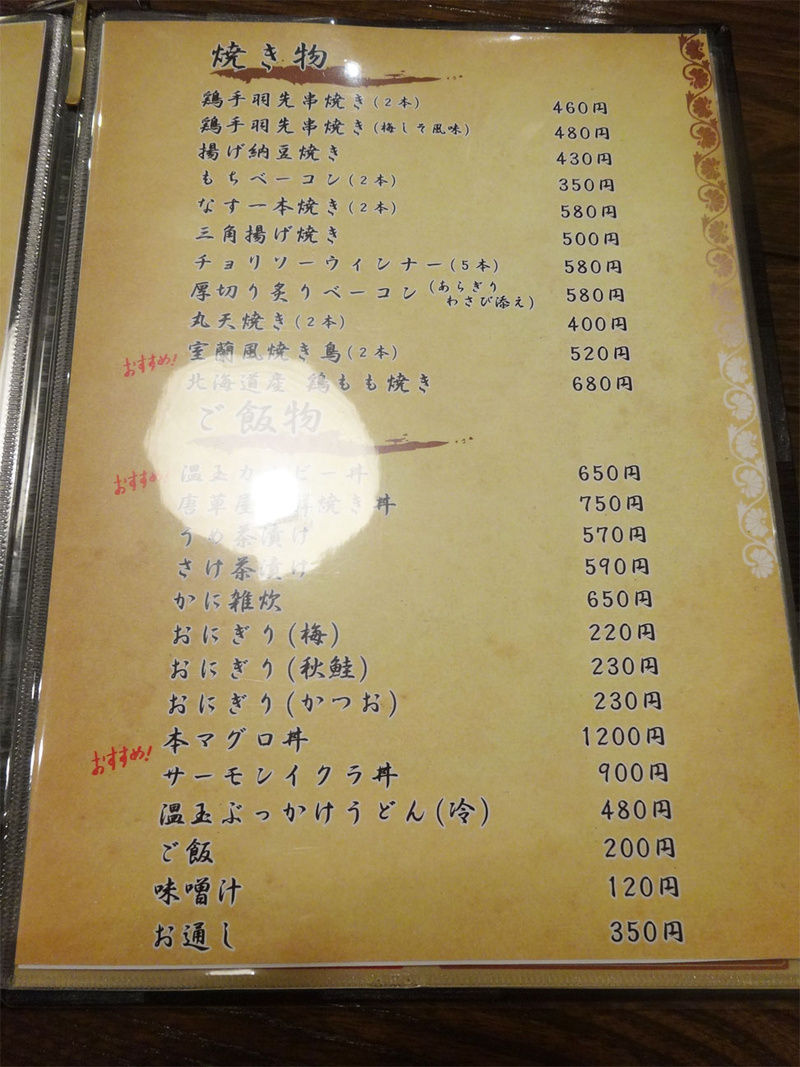 焼き物
鶏手羽先串焼き(2本) 460円
鶏手羽先串焼き(梅しそ風味) 480円
揚げ納豆焼き 430円
もちベーコン(2本) 350円
なす一本焼き(2本) 580円
三角揚げ焼き 500円
チョリソーウィンナー(5本) 580円
厚切り炙りベーコン(あらぎりわさび添え) 580円
丸天焼き(2本) 400円
おすすめ! 室蘭風焼き鳥(2本) 520円
北海道産 鶏もも焼き 680円
ご飯物
おすすめ 温玉カルビー丼 650円
唐草屋 焼き丼 750円
うめ茶漬け 570円
さけ茶漬け 590円
かに雑炊 650円
おにぎり(梅) 220円
おにぎり(秋鮭) 230円
おにぎり(かつお) 230円
おすすめ! 本マグロ丼 1200円
サーモンイクラ丼 900円
温玉ぶっかけうどん(冷) 480円
ご飯 200円
味噌汁 120円
お通し 350円